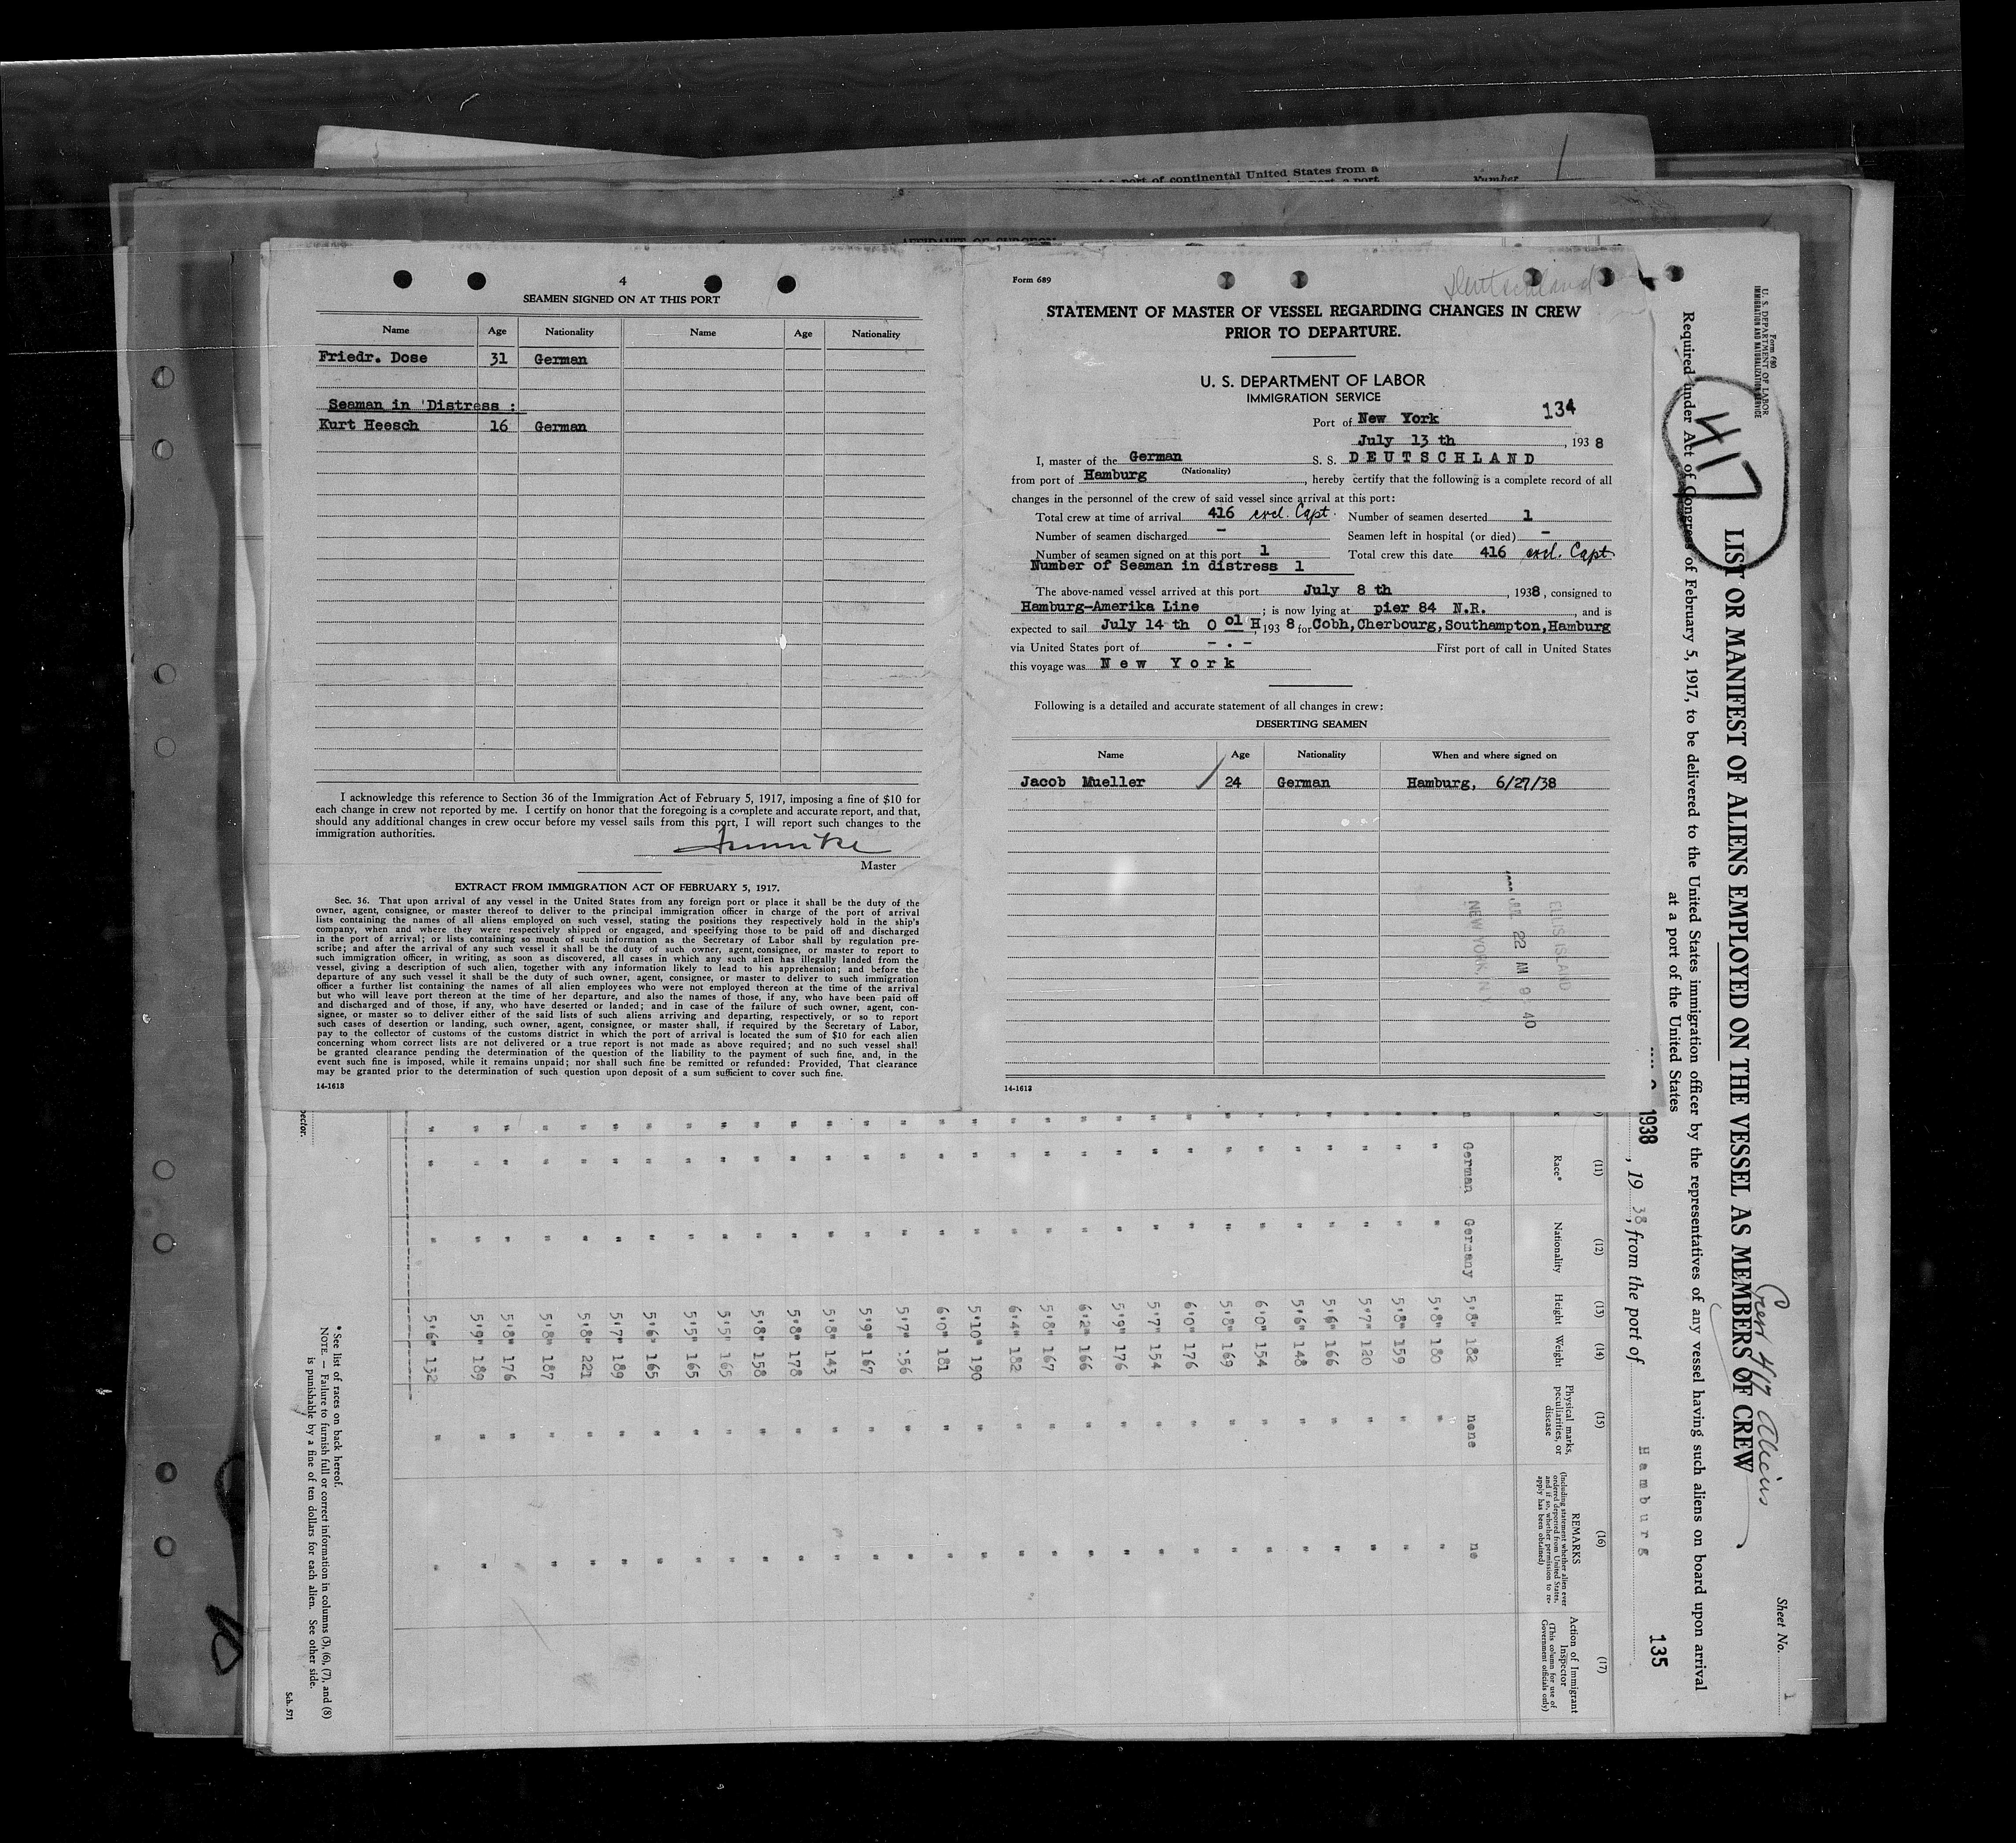 port of continental United States from a
Number
4
SEAMEN SIGNED ON AT THIS PORT
Name Age Nationality Name Age Nationality
Friedr. Dose 31 German
Seaman in 'Distress :
Kurt Heesch 16 German
I acknowledge this reference to Section 36 of the Immigration Act of February 5, 1917, imposing a fine of $10 for
each change in crew not reported by me. I certify on honor that the foregoing is a complete and accurate report, and that,
should any additional changes in crew occur before my vessel sails from this port, I will report such changes to the
immigration authorities.
Master
EXTRACT FROM IMMIGRATION ACT OF FEBRUARY 5, 1917.
Sec. 36. That upon arrival of any vessel in the United States from any foreign port or place it shall be the duty of the
owner, agent, consignee, or master thereof to deliver to the principal immigration officer in charge of the port of arrival
lists containing the names of all aliens employed on such vessel, stating the positions they respectively hold in the ship's
company, when and where they were respectively shipped or engaged, and specifying those to be paid off and discharged
in the port of arrival; or lists containing so much of such information as the Secretary of Labor shall by regulation pre-
scribe; and after the arrival of any such vessel it shall be the duty of such owner, agent, consignee, or master to report to
such immigration officer, in writing, as soon as discovered, all cases in which any such alien has illegally landed from the
vessel, giving a description of such alien, together with any information likely to lead to his apprehension; and before the
departure of any such vessel it shall be the duty of such owner, agent, consignee, or master to deliver to such immigration
officer a further list containing the names of all alien employees who were not employed thereon at the time of the arrival
but who will leave port thereon at the time of her departure, and also the names of those, if any, who have been paid off
and discharged and of those, if any, who have deserted or landed; and in case of the failure of such owner, agent, con-
signee, or master so to deliver either of the said lists of such aliens arriving and departing, respectively, or so to report
such cases of desertion or landing, such owner, agent, consignee, or master shall, if required by the Secretary of Labor,
pay to the collector of customs of the customs district in which the port of arrival is located the sum of $10 for each alien
concerning whom correct lists are not delivered or a true report is not made as above required; and no such vessel shall
be granted clearance pending the determination of the question of the liability to the payment of such fine, and, in the
event such fine is imposed, while it remains unpaid; nor shall such fine be remitted or refunded: Provided, That clearance
may be granted prior to the determination of such question upon deposit of a sum sufficient to cover such fine.
14-1618
Form 689
Deutschland
STATEMENT OF MASTER OF VESSEL REGARDING CHANGES IN CREW
PRIOR TO DEPARTURE.
U. S. DEPARTMENT OF LABOR
IMMIGRATION SERVICE
134
Port of New York
July 13 th, 1938
I, master of the German S. S. DEUTSCHLAND
(Nationality)
from port of Hamburg, hereby certify that the following is a complete record of all
changes in the personnel of the crew of said vessel since arrival at this port:
Total crew at time of arrival 416 excl. Capt. Number of seamen deserted 1
Number of seamen discharged - Seamen left in hospital (or died) -
Number of seamen signed on at this port 1 Total crew this date 416 excl. Capt
Number of Seaman in distress 1
The above-named vessel arrived at this port July 8 th, 1938, consigned to
Hamburg-Amerika Line; is now lying at pier 84 N.R., and is
expected to sail July 14 th 0 01 H, 1938 for Cobh, Cherbourg, Southampton, Hamburg
via United States port of - . - First port of call in United States
this voyage was New York
Following is a detailed and accurate statement of all changes in crew:
DESERTING SEAMEN
Name Age Nationality When and where signed on
Jacob Mueller 24 German Hamburg, 6/27/38
ELLIS ISLAND
JUL 22 AM 9 40
NEW YORK, N.Y.
14-1618
Form 680
U. S. DEPARTMENT OF LABOR
IMMIGRATION AND NATURALIZATION SERVICE
417
Crew 417 Aliens
Sheet No. 1
LIST OR MANIFEST OF ALIENS EMPLOYED ON THE VESSEL AS MEMBERS OF CREW
Required under Act of Congress of February 5, 1917, to be delivered to the United States immigration officer by the representatives of any vessel having such aliens on board upon arrival
at a port of the United States
1938, 19 38, from the port of Hamburg 135
(11) (12) (13) (14) (15) (16) (17)
Race* Nationality Height Weight Physical marks, peculiarities, or disease REMARKS (Including statement whether alien ever ordered deported from United States, and if so, whether permission to re-apply has been obtained) Action of Immigrant Inspector (This column for use of Government officials only)
German Germany 5'8" 182 none no
" " 5'8" 180 " "
" " 5'8" 159 " "
" " 5'7" 120 " "
" " 5'6" 166 " "
" " 5'6" 148 " "
" " 6'0" 154 " "
" " 5'8" 169 " "
" " 6'0" 176 " "
" " 5'7" 154 " "
" " 5'9" 176 " "
" " 6'2" 166 " "
" " 5'8" 167 " "
" " 6'4" 182 " "
" " 5'10" 190 " "
" " 6'0" 181 " "
" " 5'7" 156 " "
" " 5'9" 167 " "
" " 5'8" 143 " "
" " 5'8" 178 " "
" " 5'8" 158 " "
" " 5'5" 165 " "
" " 5'5" 165 " "
" " 5'6" 165 " "
" " 5'7" 189 " "
" " 5'8" 221 " "
" " 5'8" 187 " "
" " 5'8" 176 "
" " 5'9" 189 " "
" " 5'6" 132 " "
* See list of races on back hereof.
NOTE. — Failure to furnish full or correct information in columns (3), (6), (7), and (8)
is punishable by a fine of ten dollars for each alien. See other side.
Sch. 571